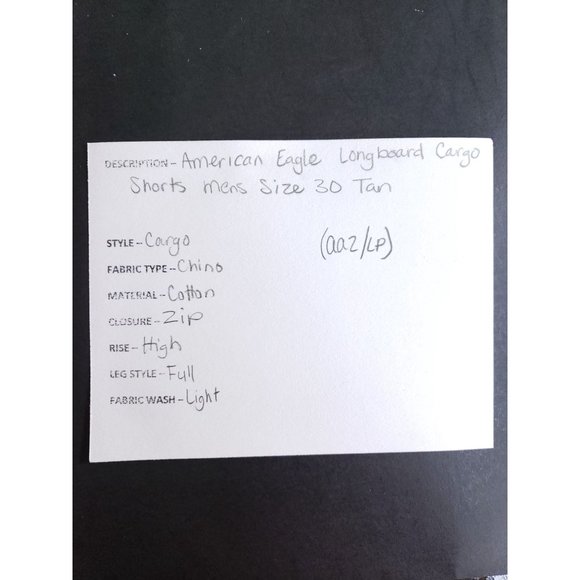 DESCRIPTION - American Eagle Longboard Cargo
Shorts mens Size 30 Tan
STYLE - Cargo
(aa2/LP)
FABRIC TYPE - Chino
MATERIAL - Cotton
CLOSURE - Zip
RISE - High
LEG STYLE - Full
FABRIC WASH - Light